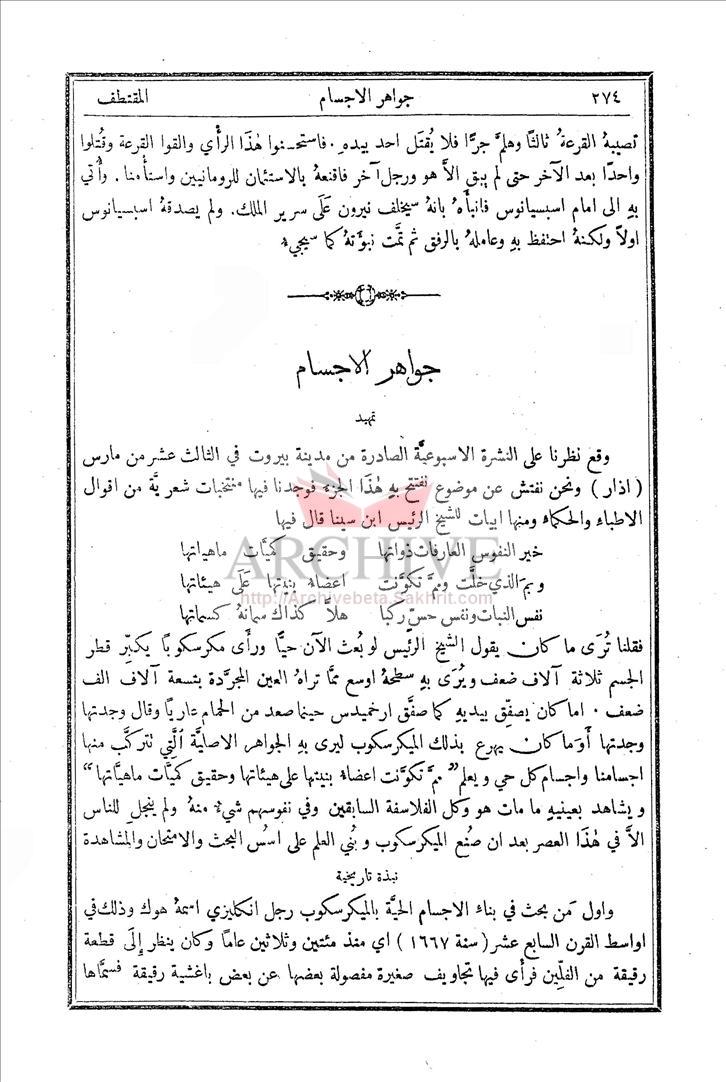 ٢٧٤ جواهر الاجسام المقتطف
تصيبهُ القرعةُ ثالثًا وهلمَّ جرًّا فلا يُقتَل احد بيدهِ. فاستحسنوا هٰذا الرأي والقوا القرعة وقُتلوا
واحدًا بعد الآخر حتى لم يبق الاَّ هو ورجل آخر فاقنعهُ بالاستئمان للرومانيين واستأمنا. وأُتي
بهِ الى امام اسبسيانوس فانبأَهُ بانهُ سيخلف نيرون عَلَى سرير الملك. ولم يصدقهُ اسبسيانوس
اولاً ولكنهُ احتفظ بهِ وعاملهُ بالرفق ثم تمَّت نبوَّتهُ كما سيجيءُ
جواهر الاجسام
تمهيد
وقع نظرنا على النشرة الاسبوعيَّة الصادرة من مدينة بيروت في الثالث عشر من مارس
(اذار) ونحن نفتش عن موضوع نفتتح بهِ هٰذَا الجزء فوجدنا فيها منتخبات شعريَّة من اقوال
الاطباءِ والحكماءِ ومنها ابيات للشيخ الرئيس ابن سينا قال فيها
خير النفوس العارفات ذواتها وحقيق كميَّات ماهياتها
وبمَ الذي حلَّت وممَّ تكوَّنت اعضاءُ بنيتها عَلَى هيئاتها
نفس النبات ونفس حسّ ركبا هلاَّ كذاك سماتهُ كسماتها
فقلنا تُرَى ما كان يقول الشيخ الرئيس لو بُعث الآن حيًّا ورأَى مكرسكوبًا يكبّر قطر
الجسم ثلاثة آلاف ضعف ويُرَى بهِ سطحهُ اوسع ممَّا تراهُ العين المجرَّدة بتسعة آلاف الف
ضعف. اما كان يصفّق بيديهِ كما صفَّق ارخميدس حينما صعد من الحمام عاريًا وقال وجدتها
وجدتها أَوَ ما كان يهرع بذلك الميكرسكوب ليرى بهِ الجواهر الاصليَّة الَّتي تتركَّب منها
اجسامنا واجسام كل حي ويعلم "ممَّ تكوَّنت اعضاءُ بنيتها على هيئاتها وحقيق كميَّات ماهيَّاتها"
ويشاهد بعينيهِ ما مات هو وكل الفلاسفة السابقين وفي نفوسهم شيءٌ منهُ ولم ينجلِ للناس
الاَّ في هٰذَا العصر بعد ان صُنع الميكرسكوب وبُني العلم على اسُس البحث والامتحان والمشاهدة
نبذة تاريخية
واول مَن بحث في بناء الاجسام الحيَّة بالميكرسكوب رجل انكليزي اسمهُ هوك وذلك في
اواسط القرن السابع عشر (سنة ١٦٦٧) اي منذ مئتين وثلاثين عامًا وكان ينظر إِلَى قطعة
رقيقة من الفلّين فرأَى فيها تجاويف صغيرة مفصولة بعضها عن بعض باغشية رقيقة فسمَّاها
ARCHIVE
http://Archivebeta.Sakhrit.com